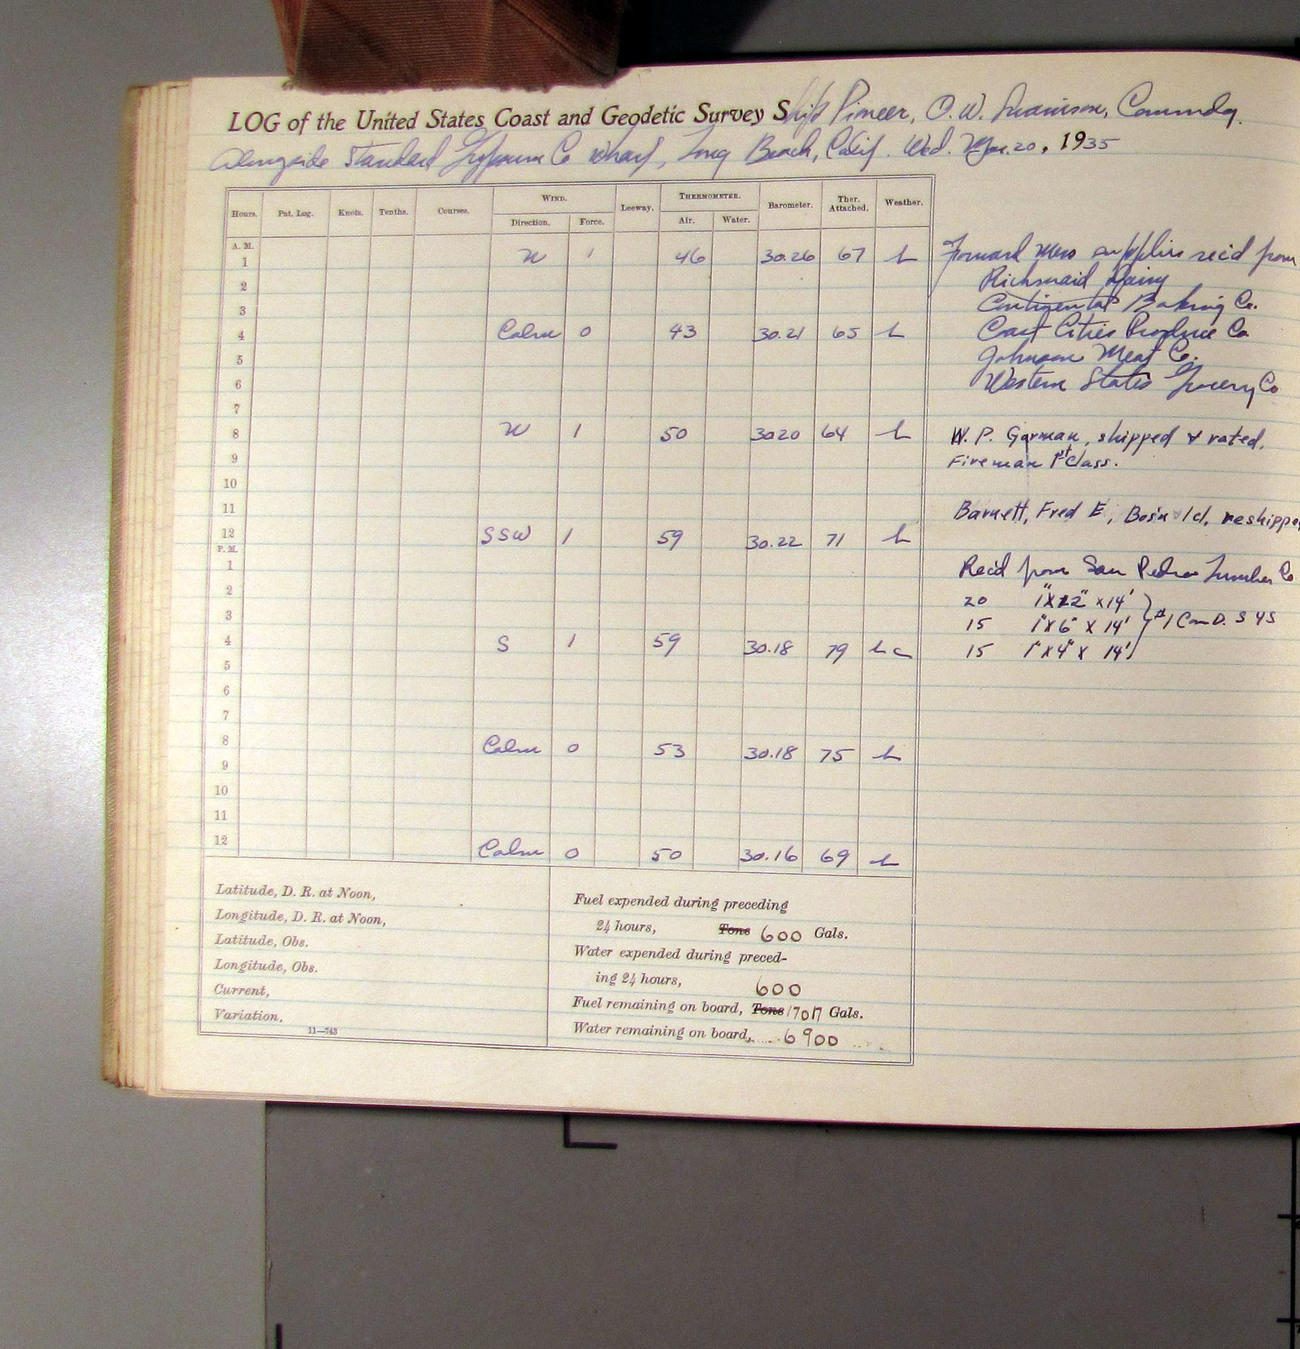 LOG of the United States Coast and Geodetic Survey Ship Pioneer, O. W. Swainson, Commdg.
Alongside Standard Gypsum Co wharf, Long Beach, Calif. Wed. Mar. 20, 1935
Hours. Pat. Log. Knots. Tenths. Courses. WIND. Direction. Force. Leeway. THERMOMETER. Air. Water. Barometer. Ther. Attached. Weather.
A. M.
1 W 1 46 30.26 67 b
2
3
4 Calm 0 43 30.21 65 b
5
6
7
8 W 1 50 3020 64 b
9
10
11
12 SSW 1 59 30.22 71 b
P. M.
1
2
3
4 S 1 59 30.18 79 b c
5
6
7
8 Calm 0 53 30.18 75 b
9
10
11
12 Calm 0 50 30.16 69 b
Forward mess supplies rec'd from
Richmaid Dairy
Continental Baking Co.
Coast Cities Produce Co
Johnson Meat Co.
Western States Grocery Co
W. P. Garman, shipped & rated.
Fireman 1st Class.
Barnett, Fred E, Bos'n 1cl, reshipped
Rec'd from San Pedro Lumber Co
20 1"X12" X 14'
15 1"X6" X 14' #1 Com D. S4S
15 1"X4" X 14'
Latitude, D. R. at Noon,
Longitude, D. R. at Noon,
Latitude, Obs.
Longitude, Obs.
Current,
Variation.
11—743
Fuel expended during preceding
24 hours, Tons 600 Gals.
Water expended during preced-
ing 24 hours, 600
Fuel remaining on board, Tons 17017 Gals.
Water remaining on board, 6900